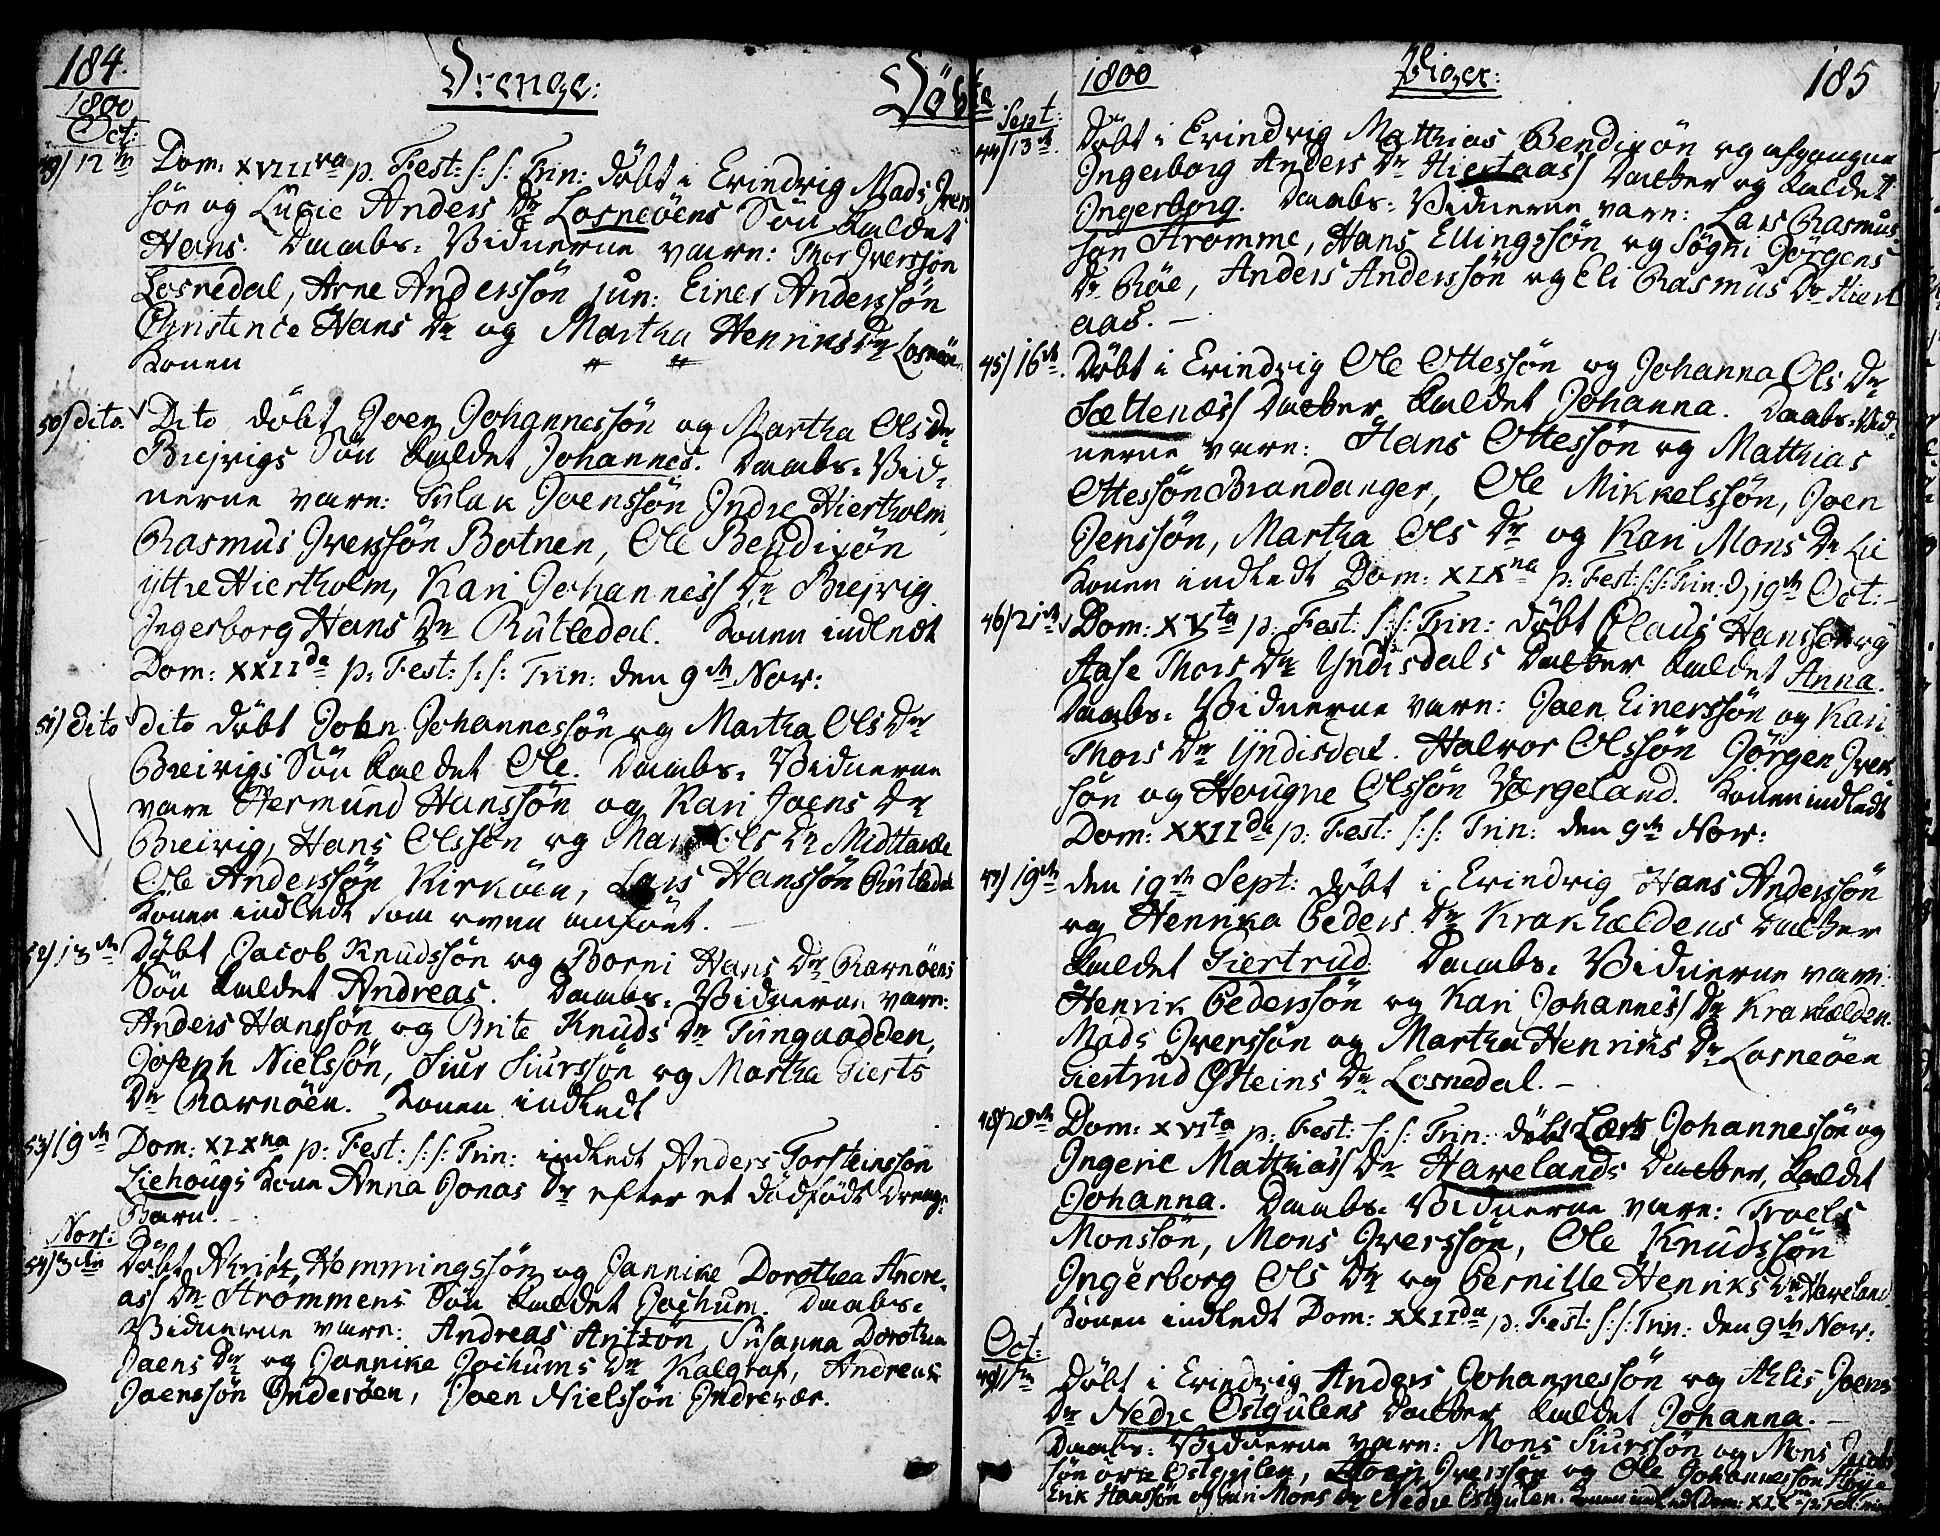 184.
Drenge:
Döbte
1800
Oct:
49/ 12te Dom: XVIIIva p. Fest: S: S: Trin: döbt i Evindvig Mads Ivers
søn og Lucie Anders Dr Losneøens Søn kaldet
Hans. Daabs-Vidnerne vare: Thor Iverssøn
Losnedal, Arne Anderssøn jun: Einer Anderssøn
Christence Hans Dr og Martha Henriks Dr Losnøen
Konen
50/ dito Dito döbt Joen Johannessøn og Martha Ols Dr
Brejvigs Søn kaldet Johannes. Daabs-Vid-
nerne vare: Sylak Joenssøn Indre Hiertholm
Rasmus Iverssøn Botnen, Ole Bendixøn
yttre Hiertholm, Kari Johannes Dr Brejvig
Ingerborg Hans Dr Rutledal. Konen indledt
Dom: XXIIda p: Fest: S: S: Trin: den 9de Nov:
51/ dito dito döbt John Johannessøn og Martha Ols Dr
Breivigs Søn kaldet Ole. Daabs-Vidnerne
vare Hermund Hanssøn og Kari Joens Dr
Breivig, Hans Olssøn og Mari Ols Dr Midttanke
Ole Anderssøn Kirkøen, Lars Hanssøn Rutledal
Konen indledt som oven anført.
52/ 13de Döbt Jacob Knudssøn og Borni Hans Dr Ravnøens
Søn kaldet Andreas. Daabs-Vidnerne vare:
Anders Hanssøn og Brite Knuds Dr Tungaadden,
Joseph Nielssøn, Siur Siurssøn og Martha Gierts
Dr Ravnøen. Konen indledt
53/ 19de Dom: XIXna p: Fest: S: S: Trin: indledt Anders Torsteinssøn
Liehougs Kone Anna Jonas Dr efter et dödfödt Drenge
Barn.
Nov:
54/ 3die Döbt Hemmingssøn og Jannike Dorothea Andre-
as Dr Strømmens Søn kaldet Jochum. Daabs-
Vidnerne vare: Andreas Susanna Dorothea
Jaens Dr og Jannike Jochums Dr Kalgraf, Andreas
Joenssøn Inderøen, Joen Nielssøn Indrevær.
1800
Piger:
185
Sept:
44/ 13de Döbt i Evindvig Matthias Bendixøn og afgangne
Ingerborg Anders Dr Hiertaas Datter og kaldet
Ingerborg. Daabs-Vidnerne vare: Lars Rasmus-
søn Strømme, Hans Ellingssøn og Søgni Görgens
Dr Røe, Anders Anderssøn og Eli Rasmus Dr Hiert
aas.
45/ 16de Döbt i Evindvig Ole Ottessøn og Johanna Ols Dr
Sættenæs Datter kaldet Johanna. Daabs-Vid-
nerne vare: Hans Ottessøn og Matthias
Ottessøn Brandanger, Ole Mikkelssøn, Joen
Jenssøn, Martha Ols Dr og Kari Mons Dr Lie
Konen indledt Dom: XIXna p: Fest: S: S: Trin: d: 19de Oct:
46/ 21de Dom: XVta p: Fest: S: S: Trin: döbt Claus Hanssøn og
Aase Thors Dr Yndisdals Datter kaldet Anna.
Daabs-Vidnerne vare: Joen Einerssøn og Kari
Thors Dr Yndisdal. Halvor Olssøn Jörgen Iver
søn og Hougne Olssøn Værgeland. Konen indledt
Dom: XXIIda p: Fest: S: S: Trin: den 9de Nov:
47/ 19de den 19de Sept: döbt i Evindvig Hans Anderssøn
og Henrika Peders Dr Krakhældens Datter
kaldet Giertrud Daabs-Vidnerne vare:
Henrik Pederssøn og Kari Johannes Dr Krakhælden.
Mads Iverssøn og Martha Henriks Dr Losneøen
Giertrud Østeins Dr Losnedal.
48/ 28de Dom: XVIta p: Fest: S: S: Trin: döbt Lars Johannessøn og
Ingerie Matthias Dr Havelands Datter, kaldet
Johanna. Daabs-Vidnerne vare: Troels
Monssøn, Mons Iverssøn, Ole Knudssøn
Ingerborg Ols Dr og Pernille Henriks Dr Haveland.
Konen indledt Dom: XXIIda p: Fest: S: S: Trin: den 9de Nov:
Oct:
49/ Döbt i Evindvig Anders Johannessøn og Ahlis Joens
Dr Nedre Østgulens Datter kaldet Johanna.
Daabs-Vidnerne vare: Mons Siurssøn og Mons Jacob
søn övre Østgulen, Iverssøn og Ole Johannessøn
Erik Hanssøn og Mons Dr Nedre Østgulen. Konen indledt Dom: XIXna p: Fest: Trin: